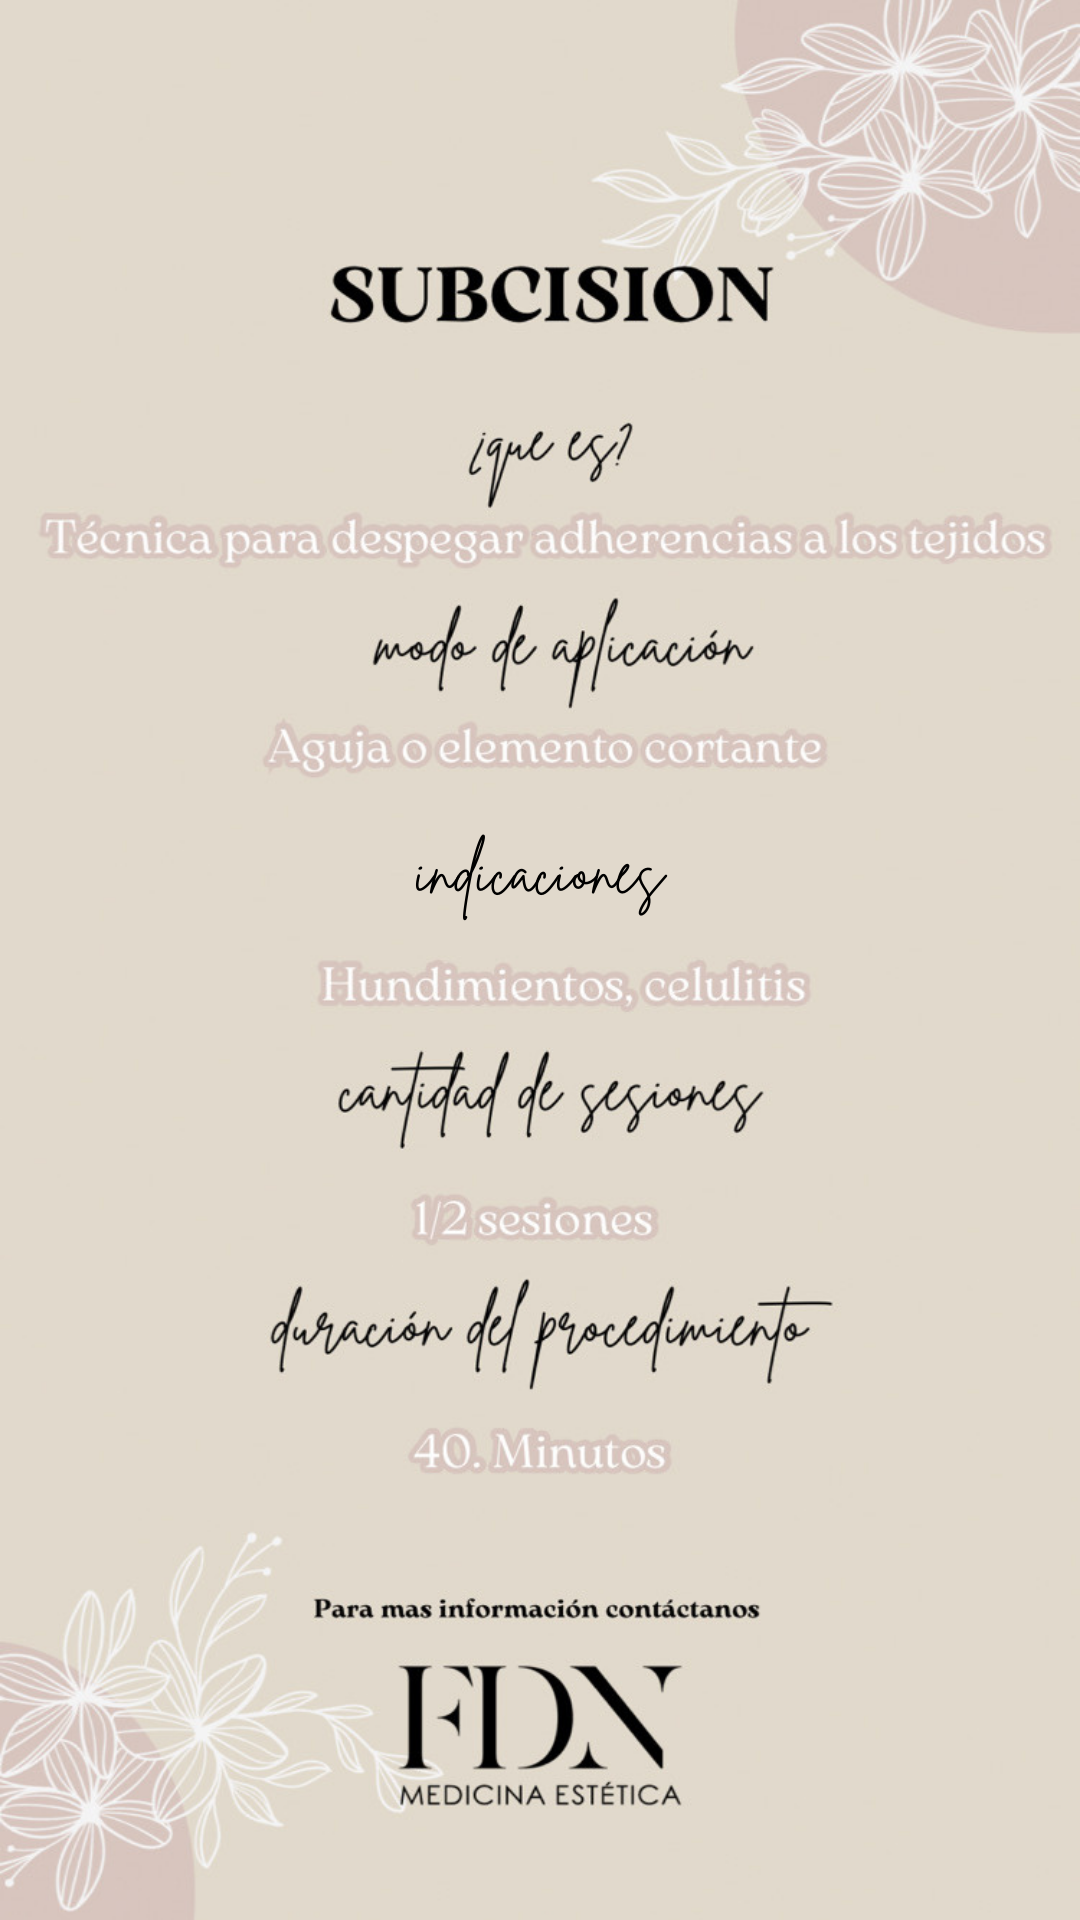 SUBCISION
¿que es?
Técnica para despegar adherencias a los tejidos
modo de aplicación
Aguja o elemento cortante
indicaciones
Hundimientos, celulitis
cantidad de sesiones
1/2 sesiones
duración del procedimiento
40. Minutos
Para mas información contáctanos
FDN
MEDICINA ESTÉTICA